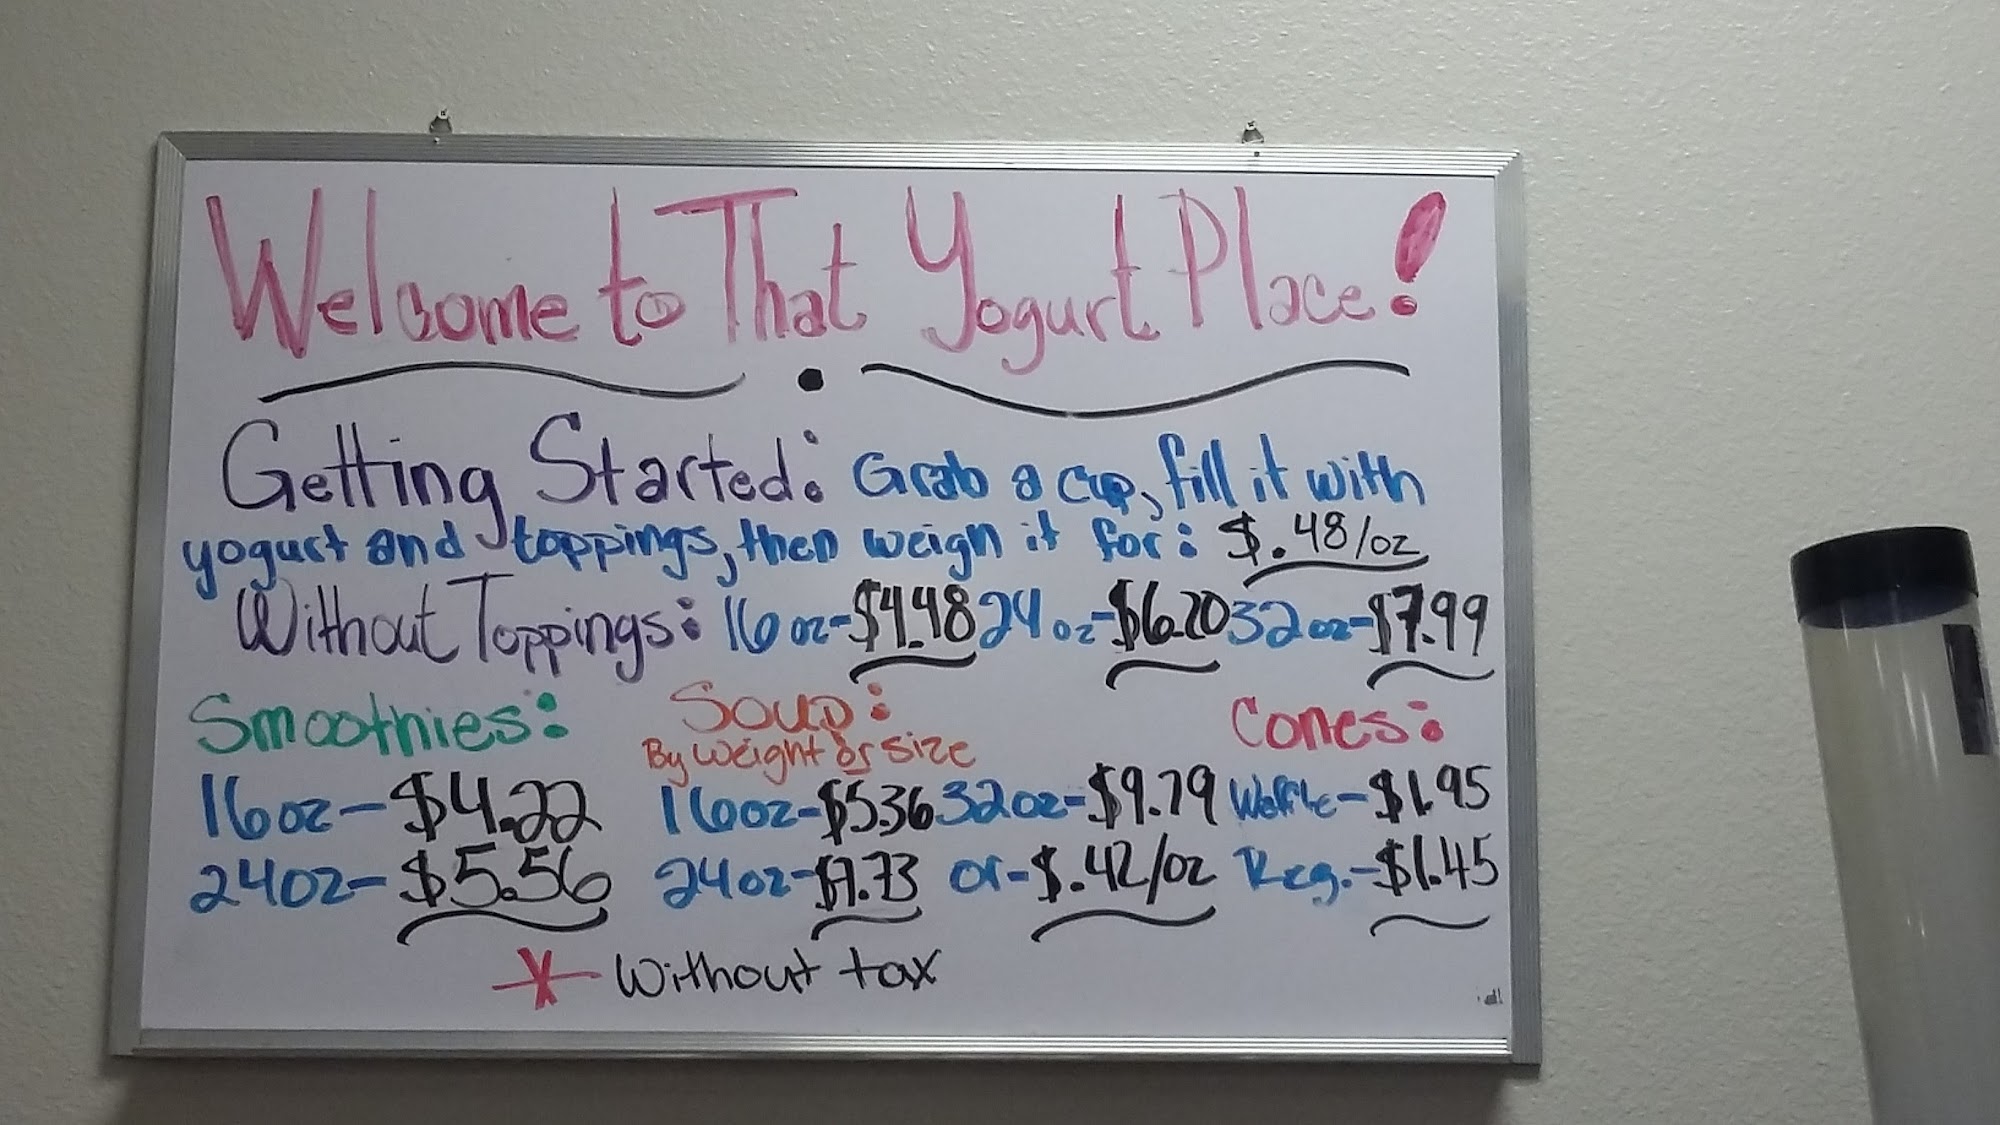 Welcome to That Yogurt Place!
Getting Started: Grab a cup, fill it with
yogurt and toppings, then weigh it for: $.48/oz
Without Toppings: 16 oz-$4.48 24 oz-$6.20 32 oz-$7.99
Smoothies:
16oz-$4.22
24oz-$5.56
Soup:
By weight or size
16oz-$5.36 32oz-$9.79
24oz-$7.73 or-$.42/oz
Cones:
Waffle-$1.95
Reg.-$1.45
* Without tax